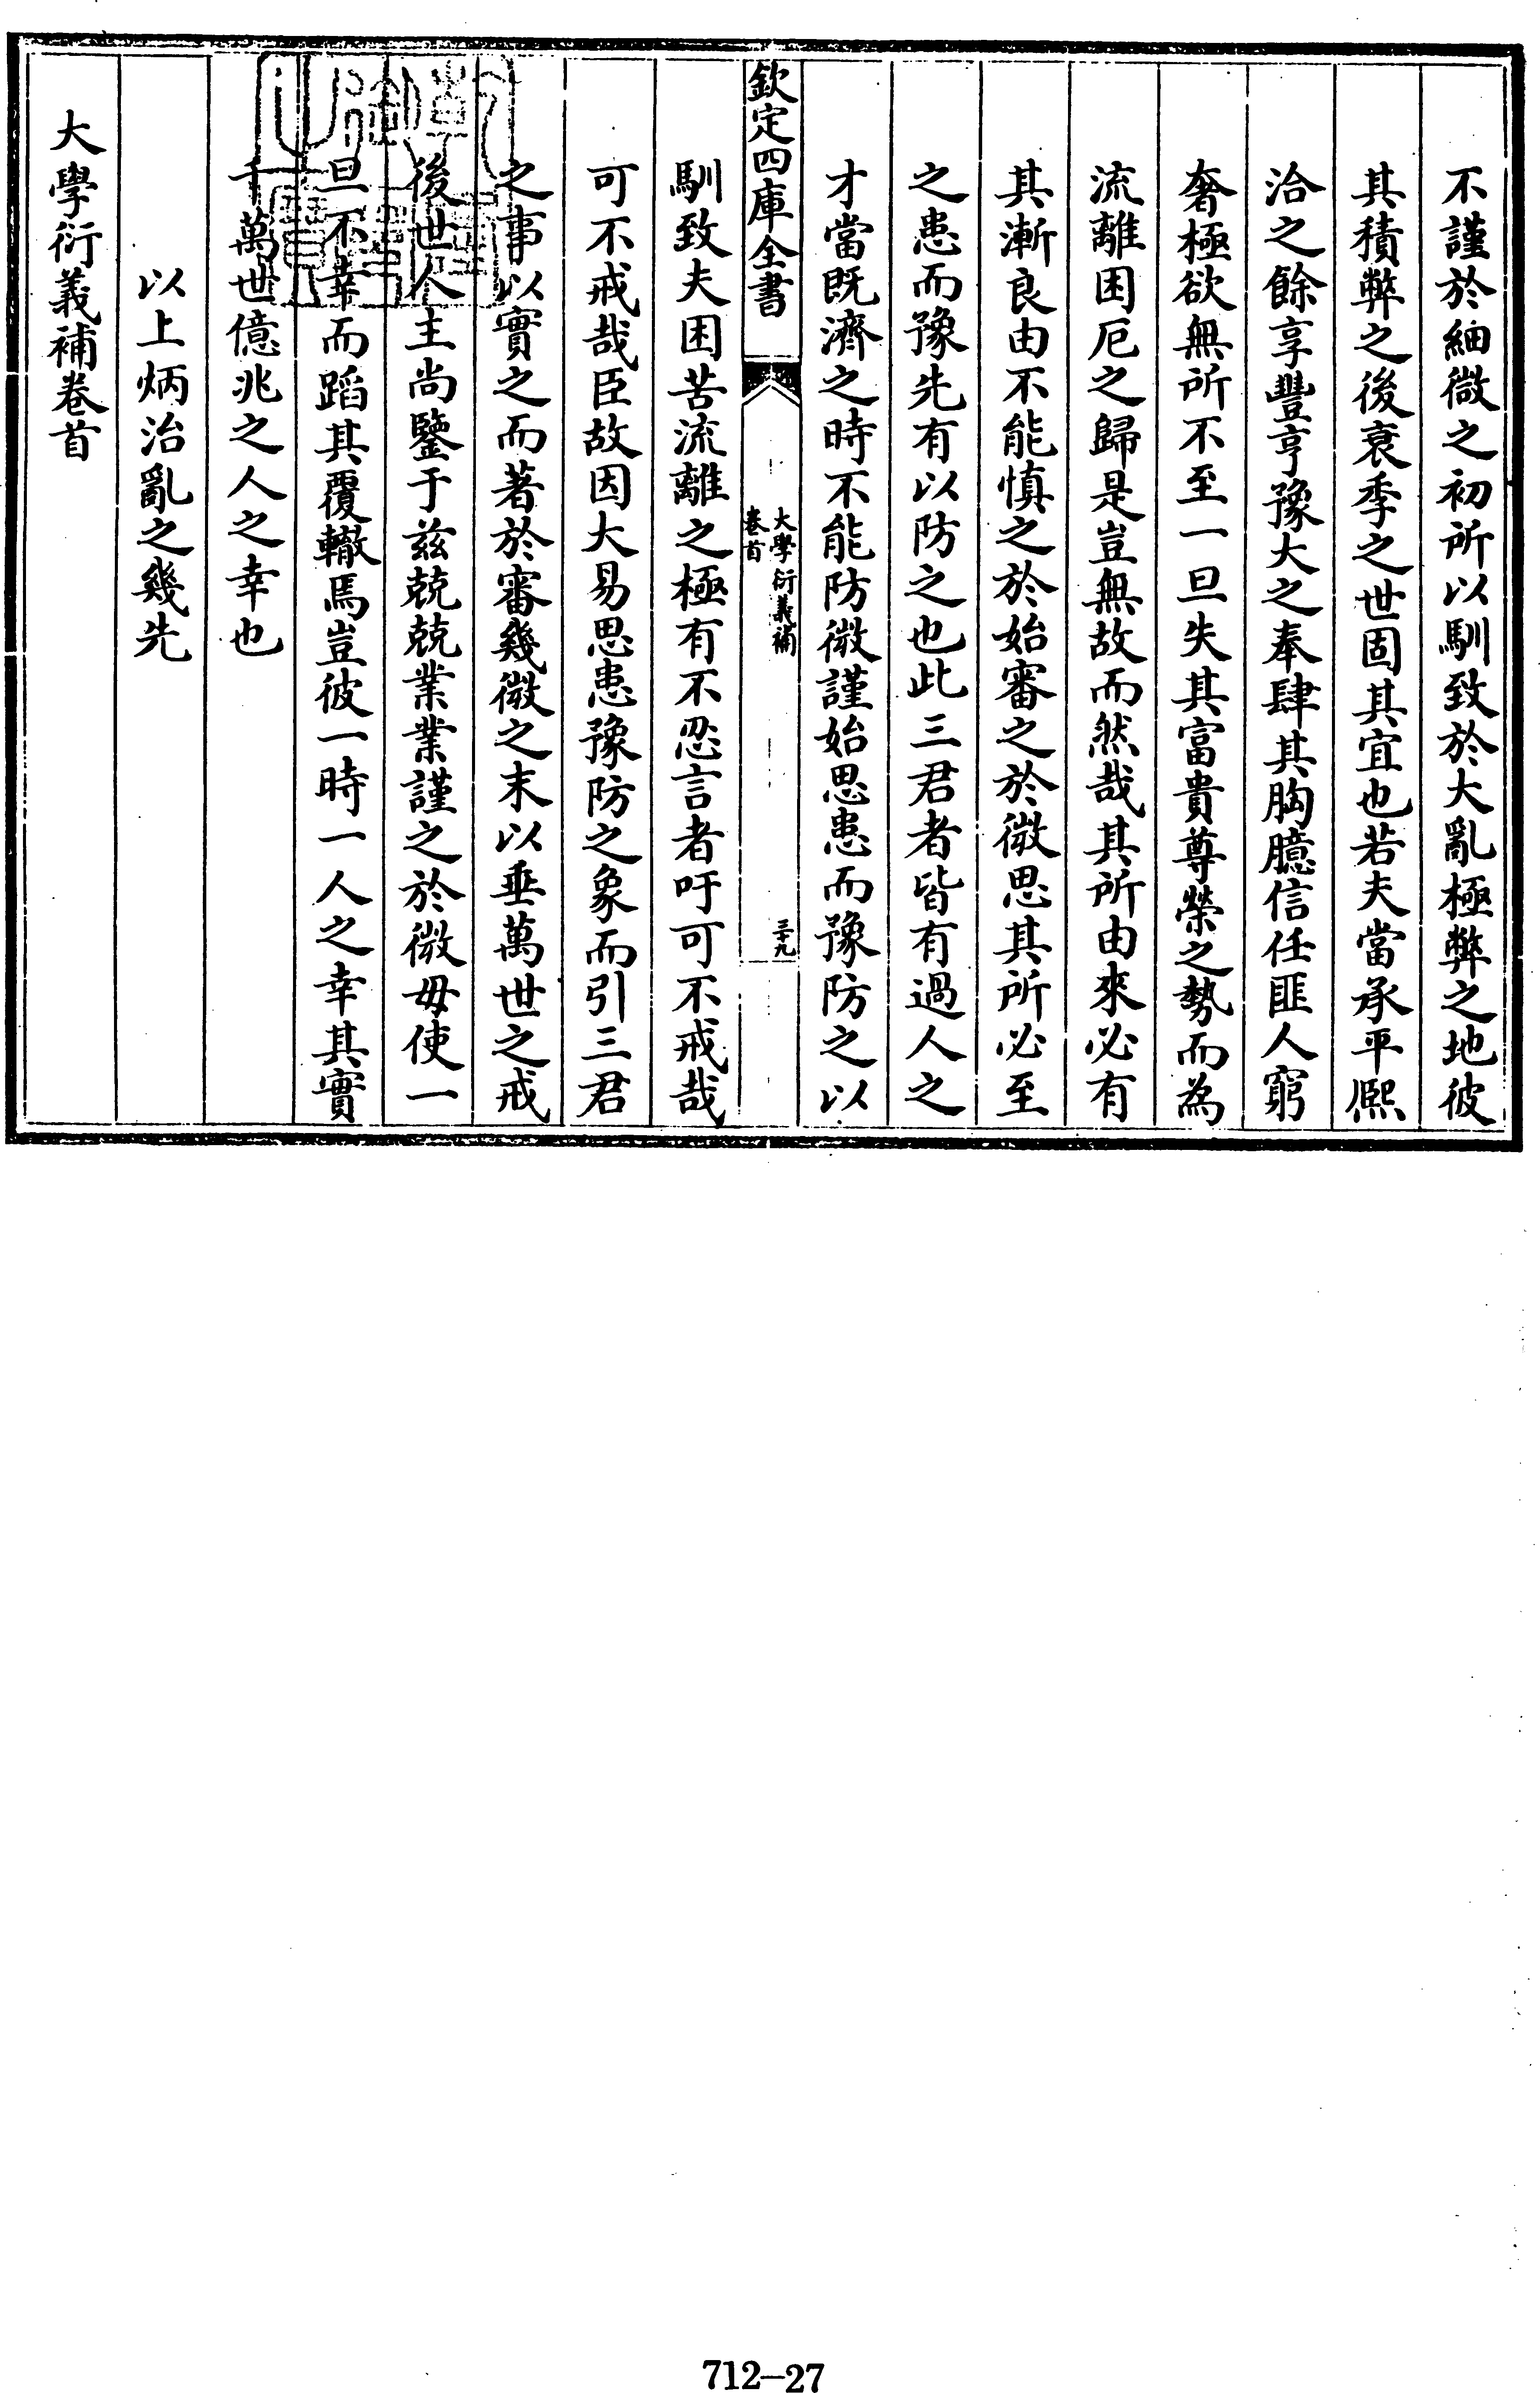 不謹於細微之初所以馴致於大亂極弊之地彼
其積弊之後衰季之世固其宜也若夫當承平熈
洽之餘享豐亨豫大之奉肆其胸臆信任匪人窮
奢極欲無所不至一旦失其富貴尊榮之勢而為
流離困厄之歸是豈無故而然哉其所由來必有
其漸良由不能慎之於始審之於微思其所必至
之患而豫先有以防之也此三君者皆有過人之
才當既濟之時不能防微謹始思患而豫防之以
欽定四庫全書
大學衍義補
卷首
三十九
馴致夫困苦流離之極有不忍言者吁可不戒哉
可不戒哉臣故因大易思患豫防之象而引三君
之事以實之而著於審幾微之末以垂萬世之戒
後世人主尚鑒于兹兢兢業業謹之於微毋使一
旦不幸而蹈其覆轍焉豈彼一時一人之幸其實
千萬世億兆之人之幸也
以上炳治亂之幾先
大學衍義補卷首
712-27